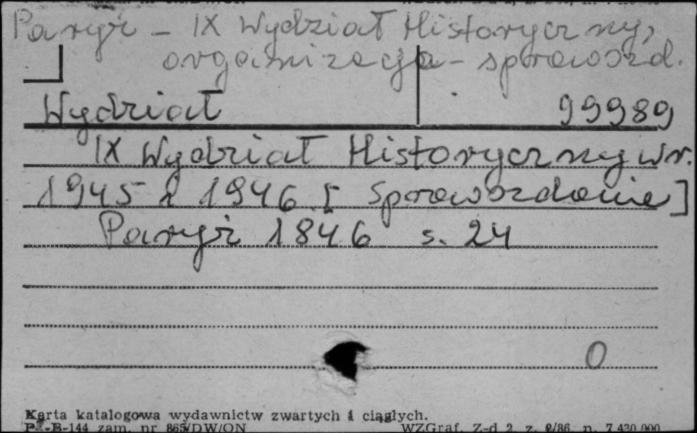 Paryż - IX Wydział Historyczny,
organizacja - sprawozd.
Wydział 99989
IX Wydział Historyczny w r.
1945 i 1946 [Sprawozdanie]
Paryż 1846 s. 24
0
Karta katalogowa wydawnictw zwartych i ciągłych.
Pu-B-144 zam. nr 865/DW/ON WZGraf. Z-d 2, z. 2/86, n. 7.430.000